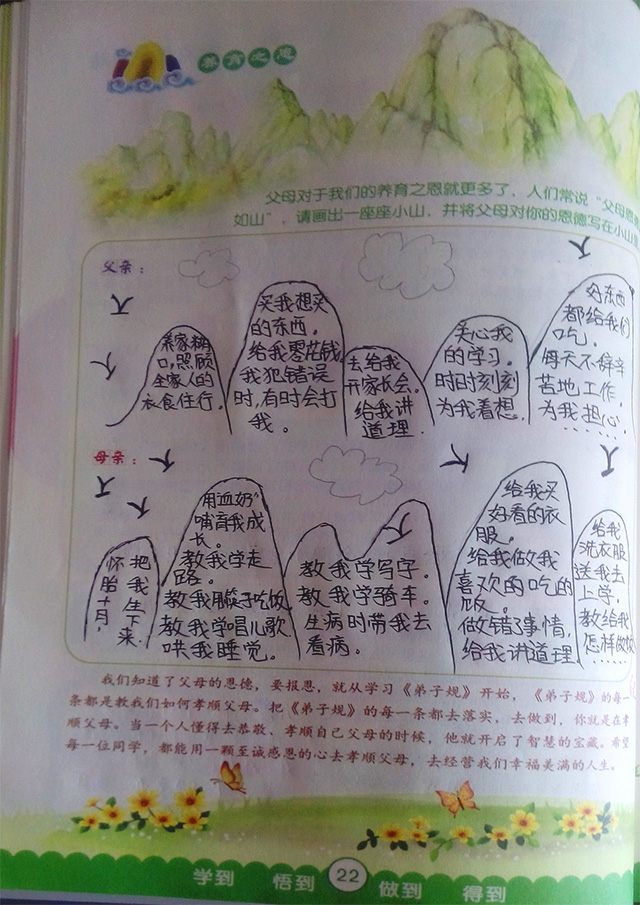 养育之恩
父母对于我们的养育之恩就更多了，人们常说“父母恩
如山”，请画出一座座小山，并将父母对你的恩德写在小山
父亲：
养家糊
口，照顾
全家人的
衣食住行。
买我想买
的东西。
给我零花钱。
我犯错误
时，有时会打
我。
去给我
开家长会。
给我讲
道理.
关心我
的学习。
时时刻刻
为我着想.
好东西
都给我们
吃。
每天不辞辛
苦地工作，
为我担心
……
母亲：
怀胎十月，
把我生下来.
用血奶
哺育我成
长。
教我学走
路。
教我用筷子吃饭
教我学唱儿歌
哄我睡觉。
教我学写字。
教我学骑车。
生病时带我去
看病。
给我买
好看的衣
服。
给我做我
喜欢的吃的
饭。
做错事情，
给我讲道理.
给我
洗衣服
送我去
上学。
教给我
怎样做
……
我们知道了父母的恩德，要报恩，就从学习《弟子规》开始，《弟子规》的每一
条都是教我们如何孝顺父母。把《弟子规》的每一条都去落实，去做到，你就是在孝
顺父母。当一个人懂得去恭敬、孝顺自己父母的时候，他就开启了智慧的宝藏。希望
每一位同学，都能用一颗至诚感恩的心去孝顺父母，去经营我们幸福美满的人生。
学到 悟到 22 做到 得到